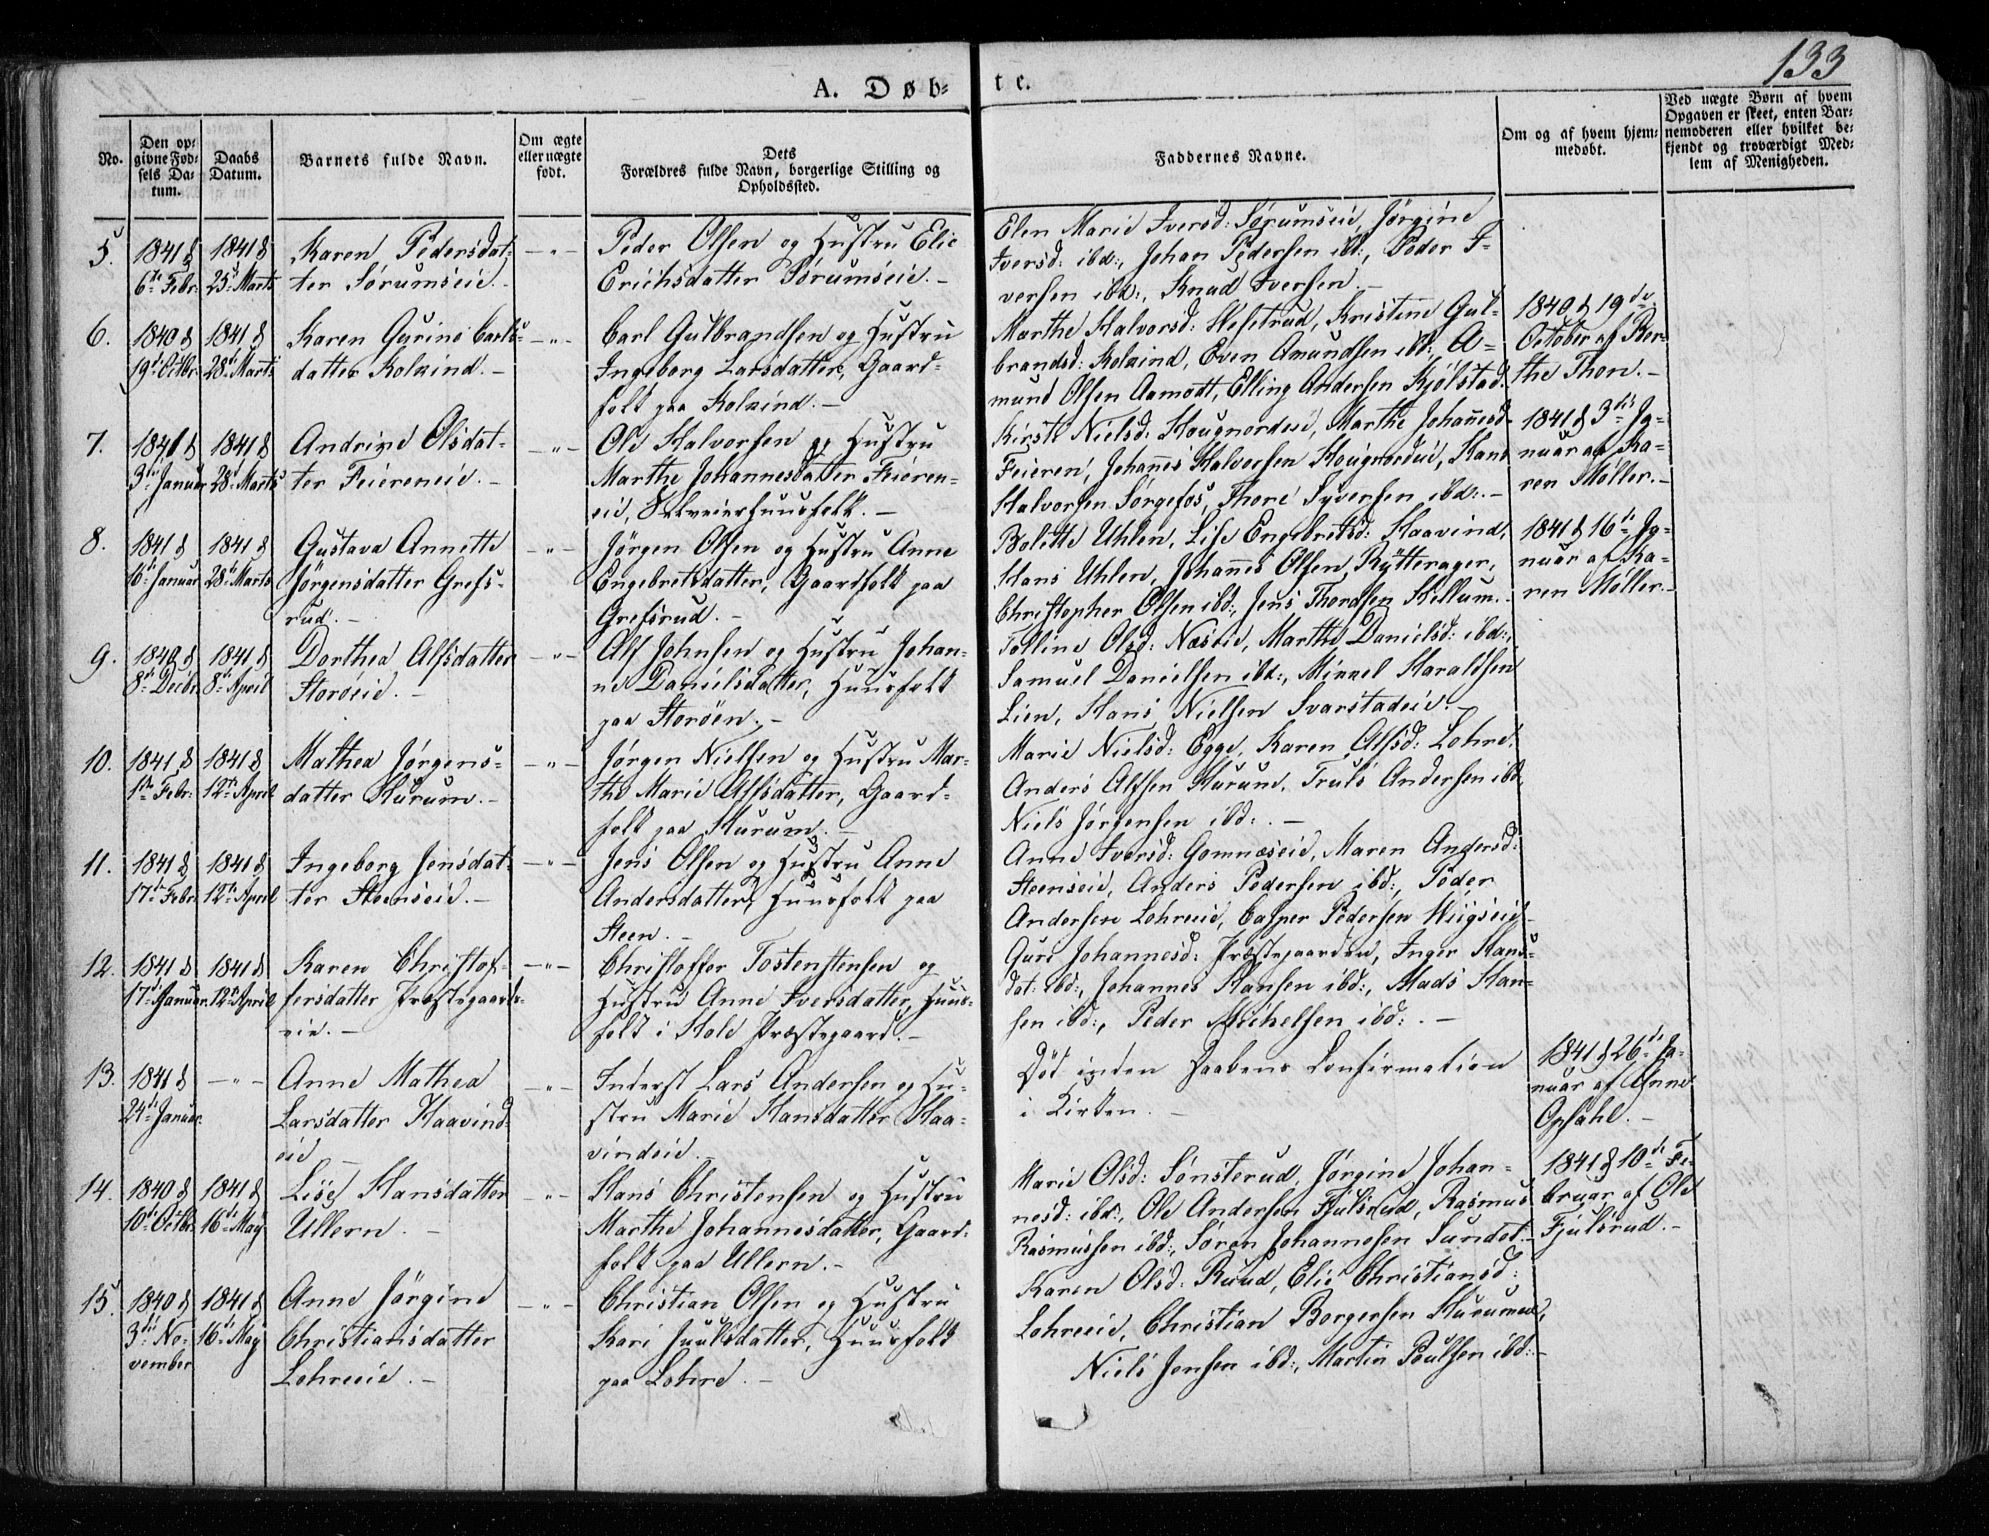 133
A. Døb-
te.
No.
Den op-
givne Fød-
sels Da-
tum.
Daabs
Datum.
Barnets fulde Navn.
Om ægte
eller uægte
født.
Dets
Forældres fulde Navn, borgerlige Stilling og
Opholdssted.
Faddernes Navne.
Om og af hvem hjem-
medøbt.
Ved uægte Børn af hvem
Opgaven er skeet, enten Bar-
nemoderen eller hvilket be-
kjendt og troværdigt Med-
lem af Menigheden.
5.
1841 d
6te Febr.
1841 d
25de Marts
Karen Pedersdat-
ter Sørumseie.-
-"-
Peder Olsen og Hustru Elie
Erichsdatter Sørumseie.-
Elen Marie Iversd: Sørumseie, Jørgine
Iversd: ibd:, Johan Pedersen ibd:, Peder I-
versen ibd:, Knud Iversen.-
6.
1840 d
19de Octbr.
1841 d
28de Marts
Karen Gurine Carls-
datter Kolkind.-
-"-
Carl Gulbrandsen og Hustru
Ingeborg Larsdatter, Gaard-
folk paa Kolkind.-
Marthe Halvorsd: Hesetrud, Kristine Gul-
brandsd: Kolkind, Even Amundsen ibd:, A-
mund Olsen Aamodt, Elling Andersen Kjølstad.
1840 d 19de
October af Ber-
the Thon.-
7.
1841 d
3die Januar
1841 d
28de Marts
Andrine Olsdat-
ter Feiereneie.-
-"-
Ole Halvorsen og Hustru
Marthe Johannesdatter Feieren-
eie, Selveierhuusfolk.-
Kirsti Nielsd: Hougnordeie, Marthe Johannesd:
Feieren, Johannes Halvorsen Hougnordeie, Hans
Halvorsen Sørgefos, Thore Syversen ibd:.-
1841 d 3die Ja-
nuar af Ka-
ren Møller.-
8.
1841 d
16de Januar
1841 d
28de Marts
Gustava Annette
Jørgensdatter Grefs-
rud.-
-"-
Jørgen Olsen og Hustru Anne
Engebretsdatter, Gaardfolk paa
Grefsrud.-
Bolette Uhlen, Lise Engebretsd: Haavind,
Hans Uhlen, Johannes Olsen Rytterager,
Christopher Olsen ibd:, Jens Thordsen Hellum.-
1841 d 16de Ja-
nuar af Ka-
ren Møller.-
9.
1840 d
8de Decbr
1841 d
8de April
Dorthea Alfsdatter
Storøeie.-
-"-
Alf Johnsen og Hustru Johan-
ne Danielsdatter, Huusfolk
paa Storøen.-
Tolline Olsd: Næseie, Marthe Danielsd: ibd:,
Samuel Danielsen ibd:, Mikkel Haraldsen
Lien, Hans Nielsen Svarstadeie.-
10.
1841 d
1ste Febr.
1841 d
12te April
Mathea Jørgens-
datter Hurum.-
-"-
Jørgen Nielsen og Hustru Mar-
the Marie Alfsdatter, Gaard-
folk paa Hurum.-
Marie Nielsd: Egge, Karen Alfsd: Lohre,
Anders Alfsen Hurum, Truls Andersen ibd,
Niels Jørgensen ibd:.-
11.
1841 d
17de Febr.
1841 d
12te April
Ingeborg Jensdat-
ter Steenseie.-
-"-
Jens Olsen og Hustru Anne
Andersdatter, Huusfolk paa
Steen.-
Anne Iversd: Gomnæseie, Maren Andersd:
Steenseie, Anders Pedersen ibd:, Peder
Andersen Lohreeie, Casper Pedersen Wiigseie.-
12.
1841 d
17de Januar.
1841 d
12te April
Karen Christof-
fersdatter Præstegaards-
eie.-
-"-
Christoffer Tostenstensen og
Hustru Anne Iversdatter, Huus-
folk i Hole Præstegaard.-
Guri Johannesd: Præstegaarden, Inger Hans-
dat: ibd:, Johannes Hansen ibd:, Mads Han-
sen ibd:, Peder Michelsen ibd:.-
13.
1841 d
24de Januar
-"-
Anne Mathea
Larsdatter Haavind-
eie
-"-
Inderst Lars Andersen og Hu-
stru Marie Hansdatter Haa-
vindeie.-
Død inden Daabens Confirmation
i Kirken.-
1841 d 26de Ja-
nuar af Anne
Opsahl.-
14.
1840 d
10de Octbr.
1841 d
16de May
Lise Hansdatter
Ullern.-
-"-
Hans Christensen og Hustru
Marthe Johannesdatter, Gaard-
folk paa Ullern.-
Marie Olsd: Sønsterud, Jørgine Johan-
nesd: ibd:, Ole Andersen Fjulsrud, Rasmus
Rasmussen ibd:, Søren Johannesen Sundet.-
1841 d 10de Fe-
bruar af Ole
Fjulsrud.-
15.
1840 d
3die No-
vember
1841 d
16de May
Anne Jørgine
Christiansdatter
Lohreeie.-
-"-
Christian Olsen og Hustru
Kari Juulsdatter, Huusfolk
paa Lohre.-
Karen Olsd: Ruud, Elie Christiansd:
Lohreeie, Christian Borgersen Hurumeie,
Niels Jensen ibd:, Martin Poulsen ibd:-